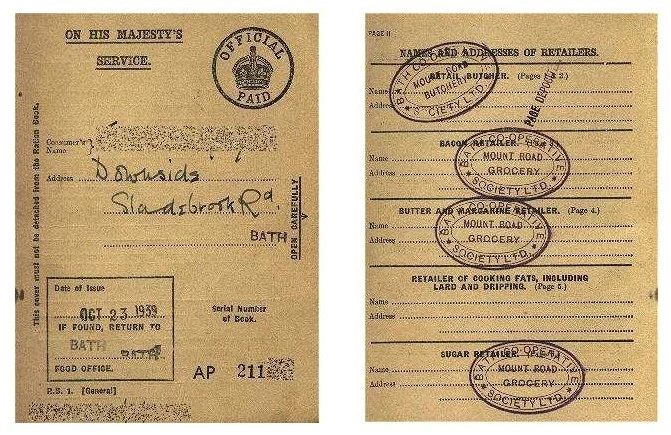 ON HIS MAJESTY'S
SERVICE.
OFFICIAL
PAID
Consumer's
Name
Address
Downside
Sladebrook Rd.
BATH
OPEN CAREFULLY
This cover must not be detached from the Ration Book.
Date of Issue
OCT 23 1939
IF FOUND, RETURN TO
BATH
FOOD OFFICE.
Serial Number
of Book.
AP 211
R.B. 1. [General]
PAGE 11
NAMES AND ADDRESSES OF RETAILERS.
RETAIL BUTCHER. (Pages 2.)
Name
Address
BATH CO-OPERATIVE
MOUNT ROAD
BUTCHERY
SOCIETY LTD.
PAGE DEPOSITED
BACON RETAILER.
Name
Address
BATH CO-OPERATIVE
MOUNT ROAD
GROCERY
SOCIETY LTD.
BUTTER AND MARGARINE RETAILER. (Page 4.)
Name
Address
BATH CO-OPERATIVE
MOUNT ROAD
GROCERY
SOCIETY LTD.
RETAILER OF COOKING FATS, INCLUDING
LARD AND DRIPPING. (Page 5.)
Name
Address
SUGAR RETAILER.
Name
Address
BATH CO-OPERATIVE
MOUNT ROAD
GROCERY
SOCIETY LTD.